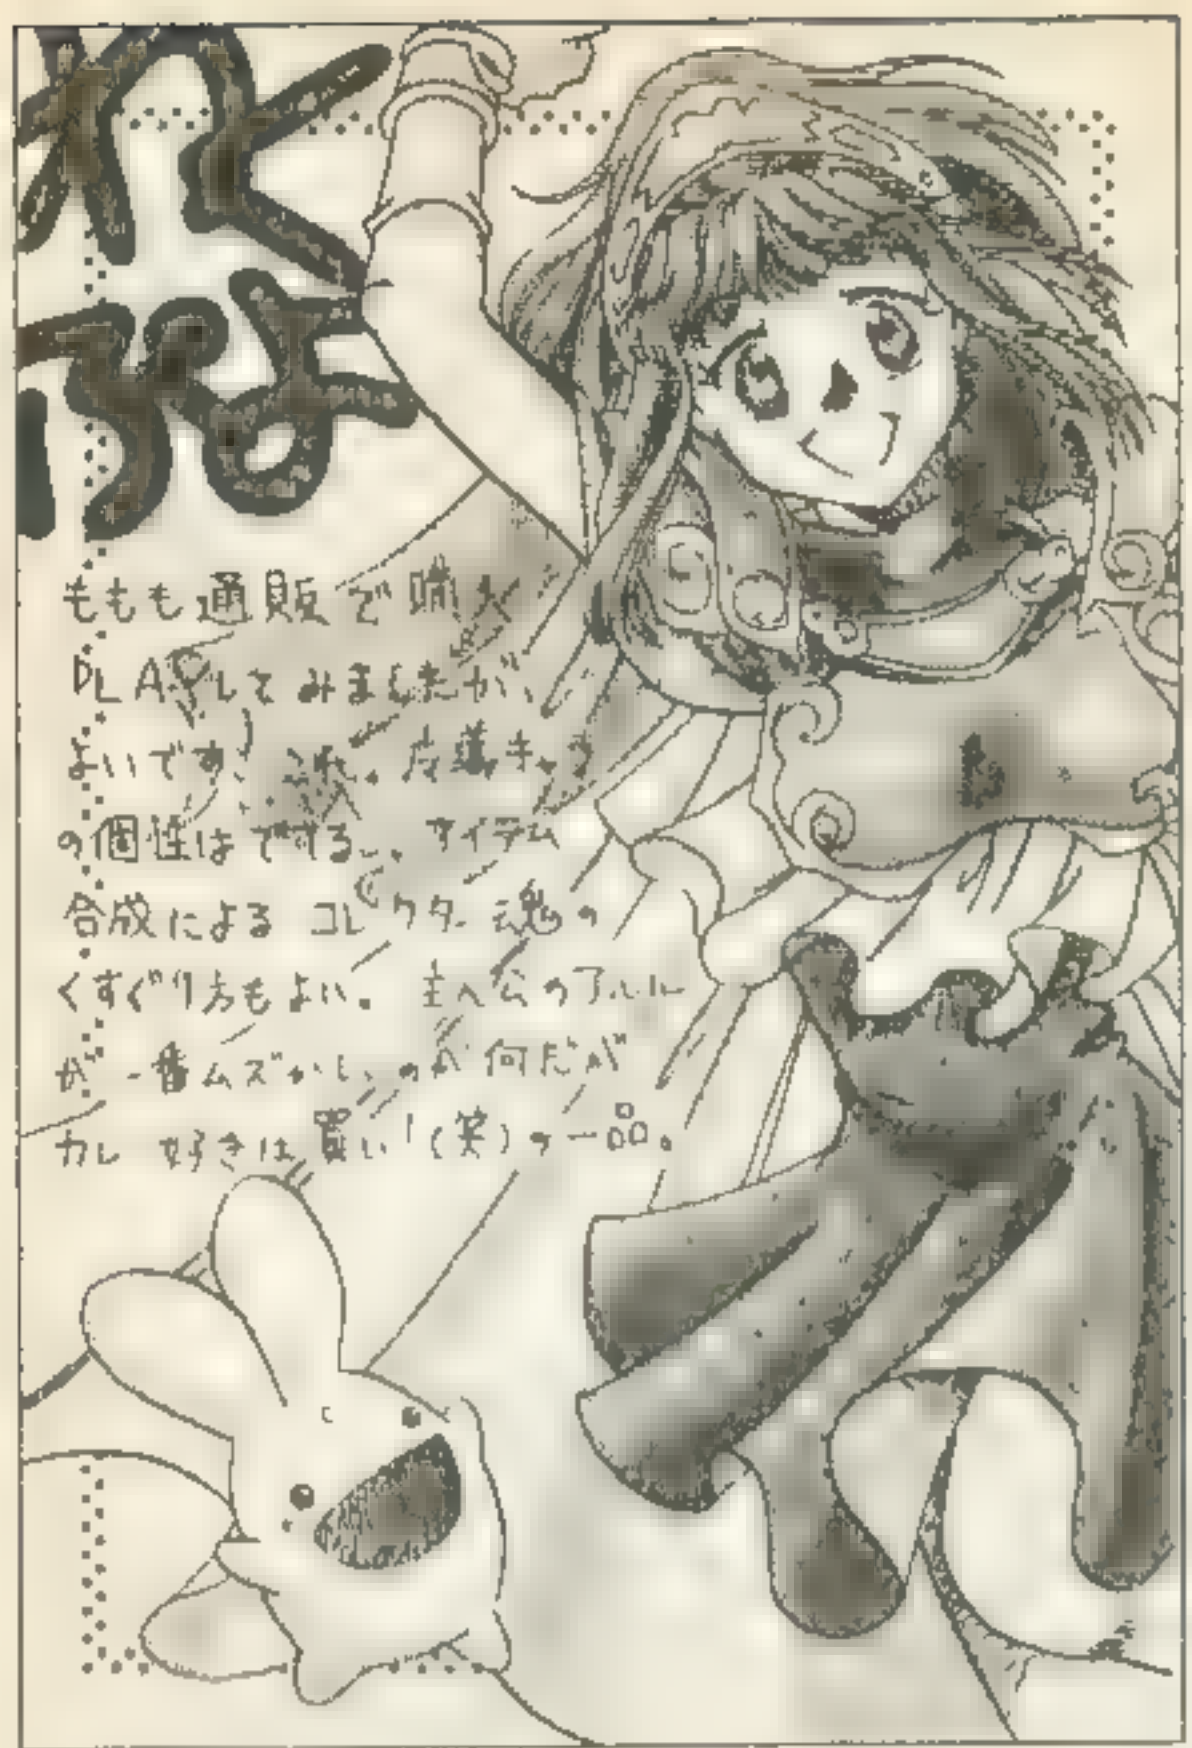 わくぷよ
ももも通販で購入
PLAYしてみましたが、
よいです! これ。 キャラ
の個性は アイテム
合成による コレクター魂の
くすぐり方もよい。 主人公のアルル
が一番ムズかしいのが何だが
カレー好きは買い!(笑)の一品。